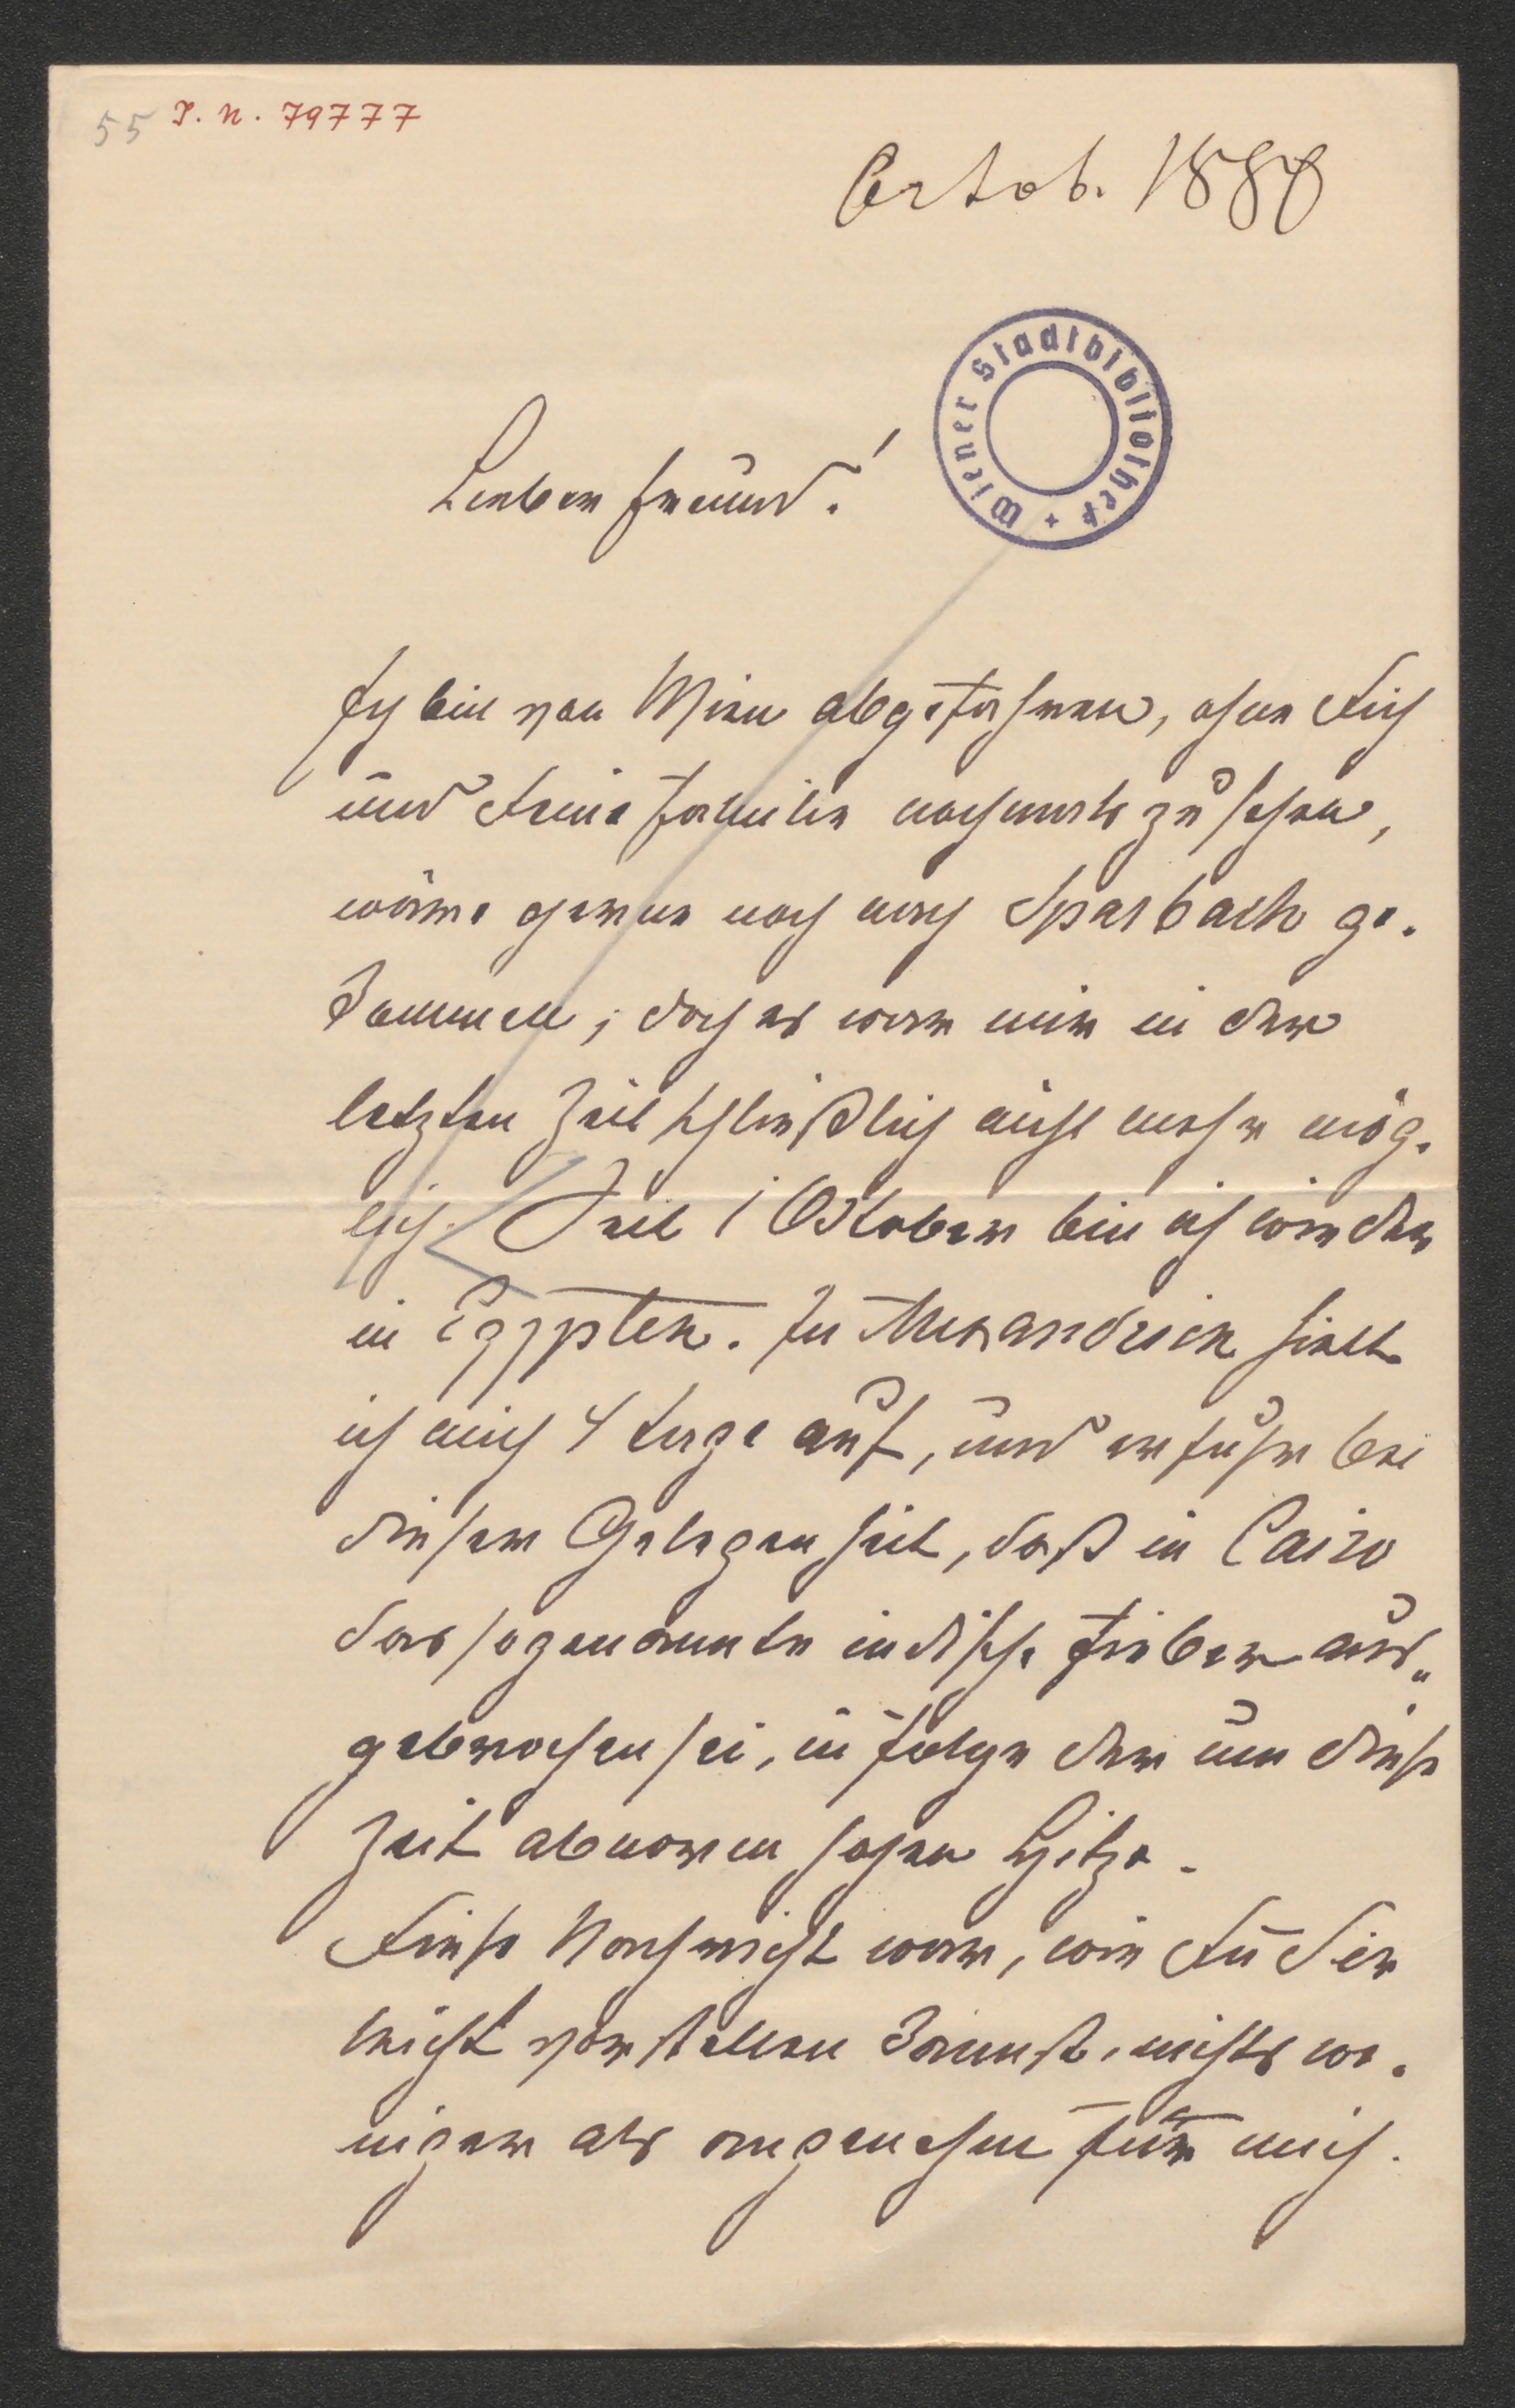 55 I. N. 79777
Octob. 1880
Wiener Stadtbibliothek +
Lieber Freund!
Ich bin von Wien abgefahren, ohne Dich
und Deine Familie nochmals zu sehen,
wäre gerne noch nach Sparbach ge-
kommen, doch es war mir in der
letzten Zeit schließlich nicht mehr mög-
lich. Seit 1 Oktober bin ich wieder
in Egypten. In Alexandrien hielt
ich mich 4 Tage auf, und erfuhr bei
dieser Gelegenheit, daß in Cairo
das sogenannte indische Fieber aus-
gebrochen sei, in Folge der um diese
Zeit abnorm hohen Hitze.
Diese Nachricht war, wie Du Dir
leicht vorstellen kannst, nichts we-
niger als angenehm für mich.